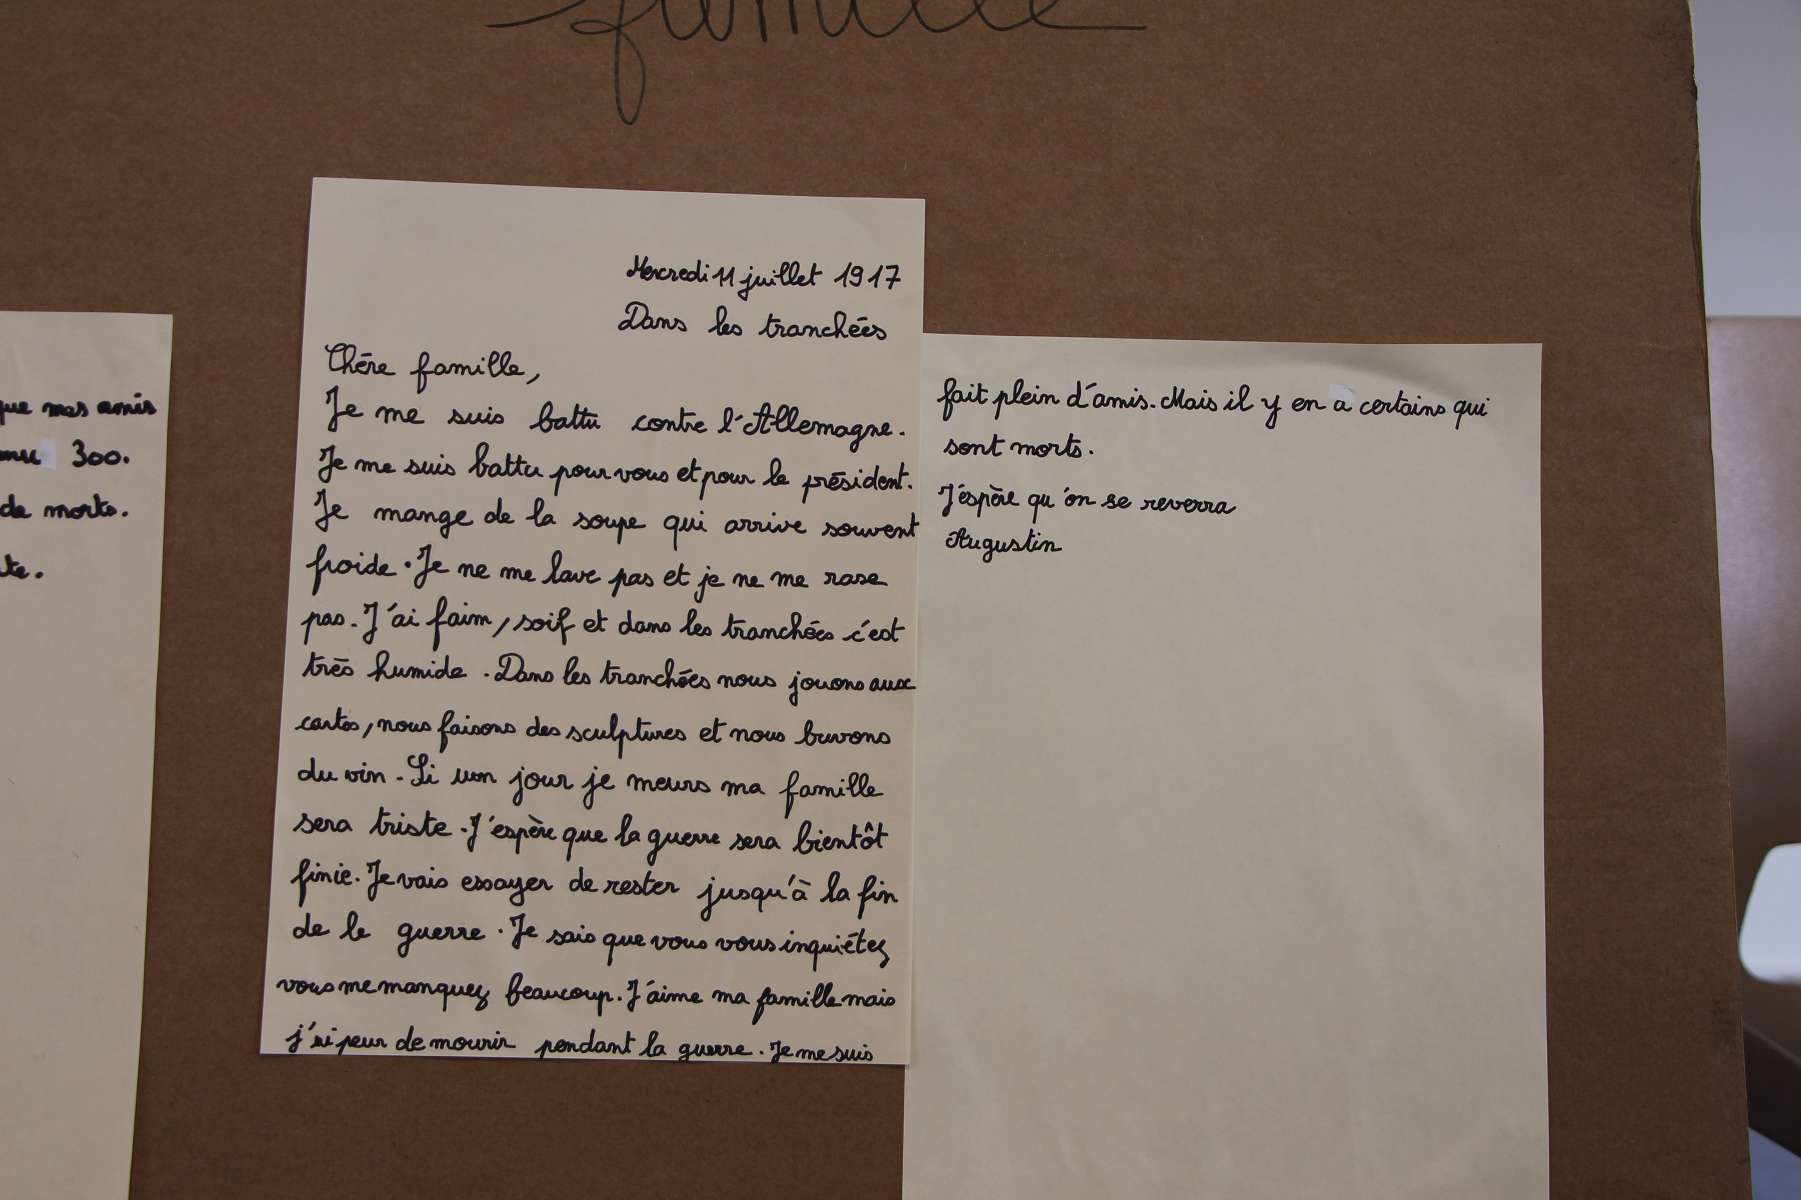 famille
que mes amis
300.
de morts.
Mercredi 11 juillet 1917
Dans les tranchées
Chère famille,
Je me suis battu contre l'Allemagne.
Je me suis battu pour vous et pour le président.
Je mange de la soupe qui arrive souvent
froide. Je ne me lave pas et je ne me rase
pas. J'ai faim, soif et dans les tranchées c'est
très humide. Dans les tranchées nous jouons aux
cartes, nous faisons des sculptures et nous buvons
du vin. Si un jour je meurs ma famille
sera triste. J'espère que la guerre sera bientôt
finie. Je vais essayer de rester jusqu'à la fin
de le guerre. Je sais que vous vous inquiétez
vous me manquez beaucoup. J'aime ma famille mais
j'ai peur de mourir pendant la guerre. Je me suis
fait plein d'amis. Mais il y en a certains qui
sont morts.
J'éspère qu'on se reverra
Augustin